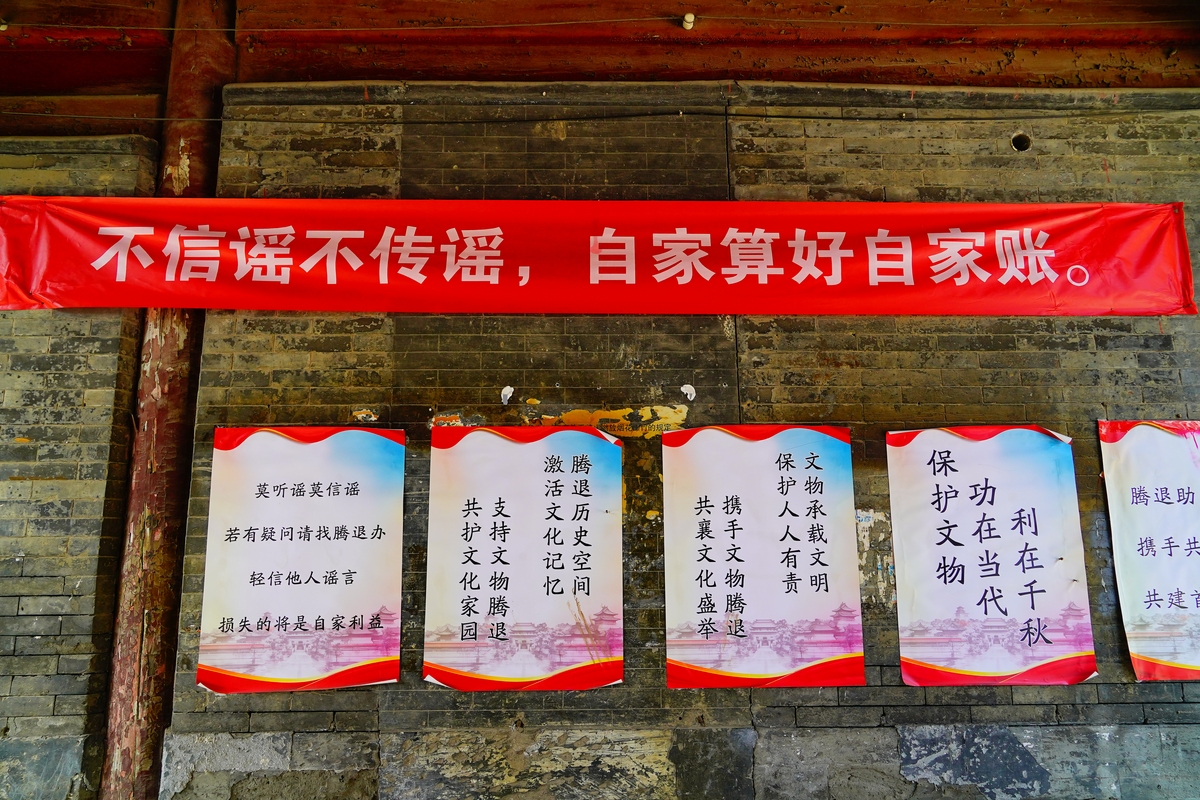 不信谣不传谣，自家算好自家账。
莫听谣莫信谣
若有疑问请找腾退办
轻信他人谣言
损失的将是自家利益
腾退历史空间
激活文化记忆
支持文物腾退
共护文化家园
文物承载文明
保护人人有责
携手文物腾退
共襄文化盛举
保护文物
功在当代
利在千秋
腾退助
携手共
共建首